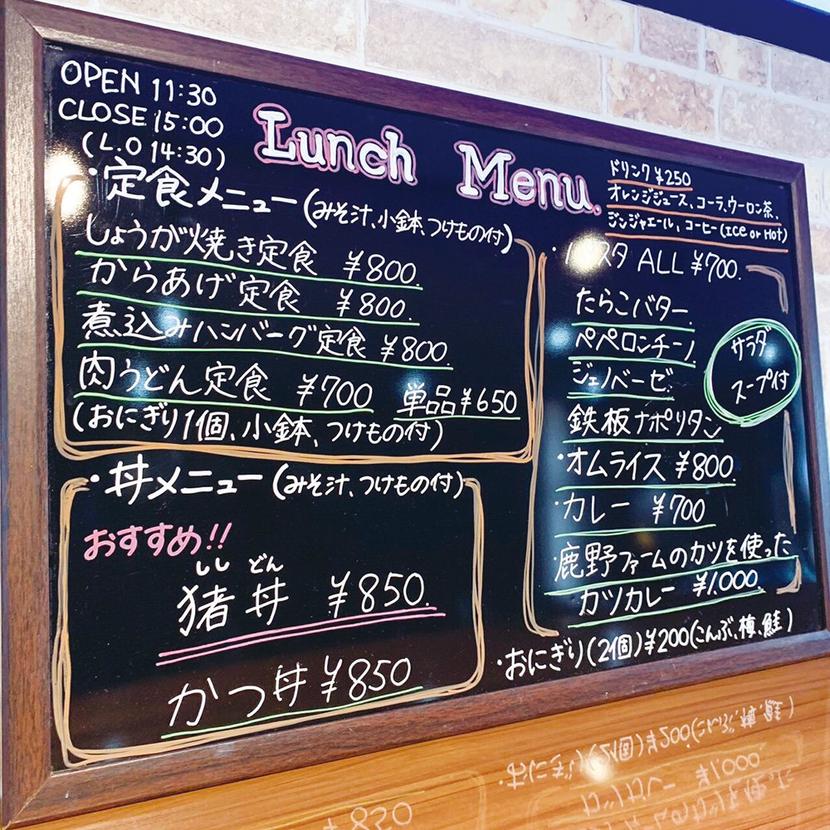 OPEN 11:30
CLOSE 15:00
(L.O 14:30)
Lunch Menu.
ドリンク ¥250
オレンジジュース、コーラ、ウーロン茶、
ジンジャエール、コーヒー(ICE or Hot)
・定食メニュー(みそ汁、小鉢、つけもの付)
しょうが焼き定食 ¥800.
からあげ定食 ¥800.
煮込みハンバーグ定食 ¥800.
肉うどん定食 ¥700 単品¥650
(おにぎり1個、小鉢、つけもの付)
・丼メニュー(みそ汁、つけもの付)
おすすめ!!
しし どん
猪丼 ¥850.
かつ丼 ¥850
・パスタ ALL ¥700.
たらこバター
ペペロンチーノ
ジェノベーゼ
鉄板ナポリタン
サラダ
スープ付
・オムライス ¥800.
・カレー ¥700
・鹿野ファームのカツを使った
カツカレー ¥1,000.
・おにぎり(2個)¥200(こんぶ、梅、鮭)